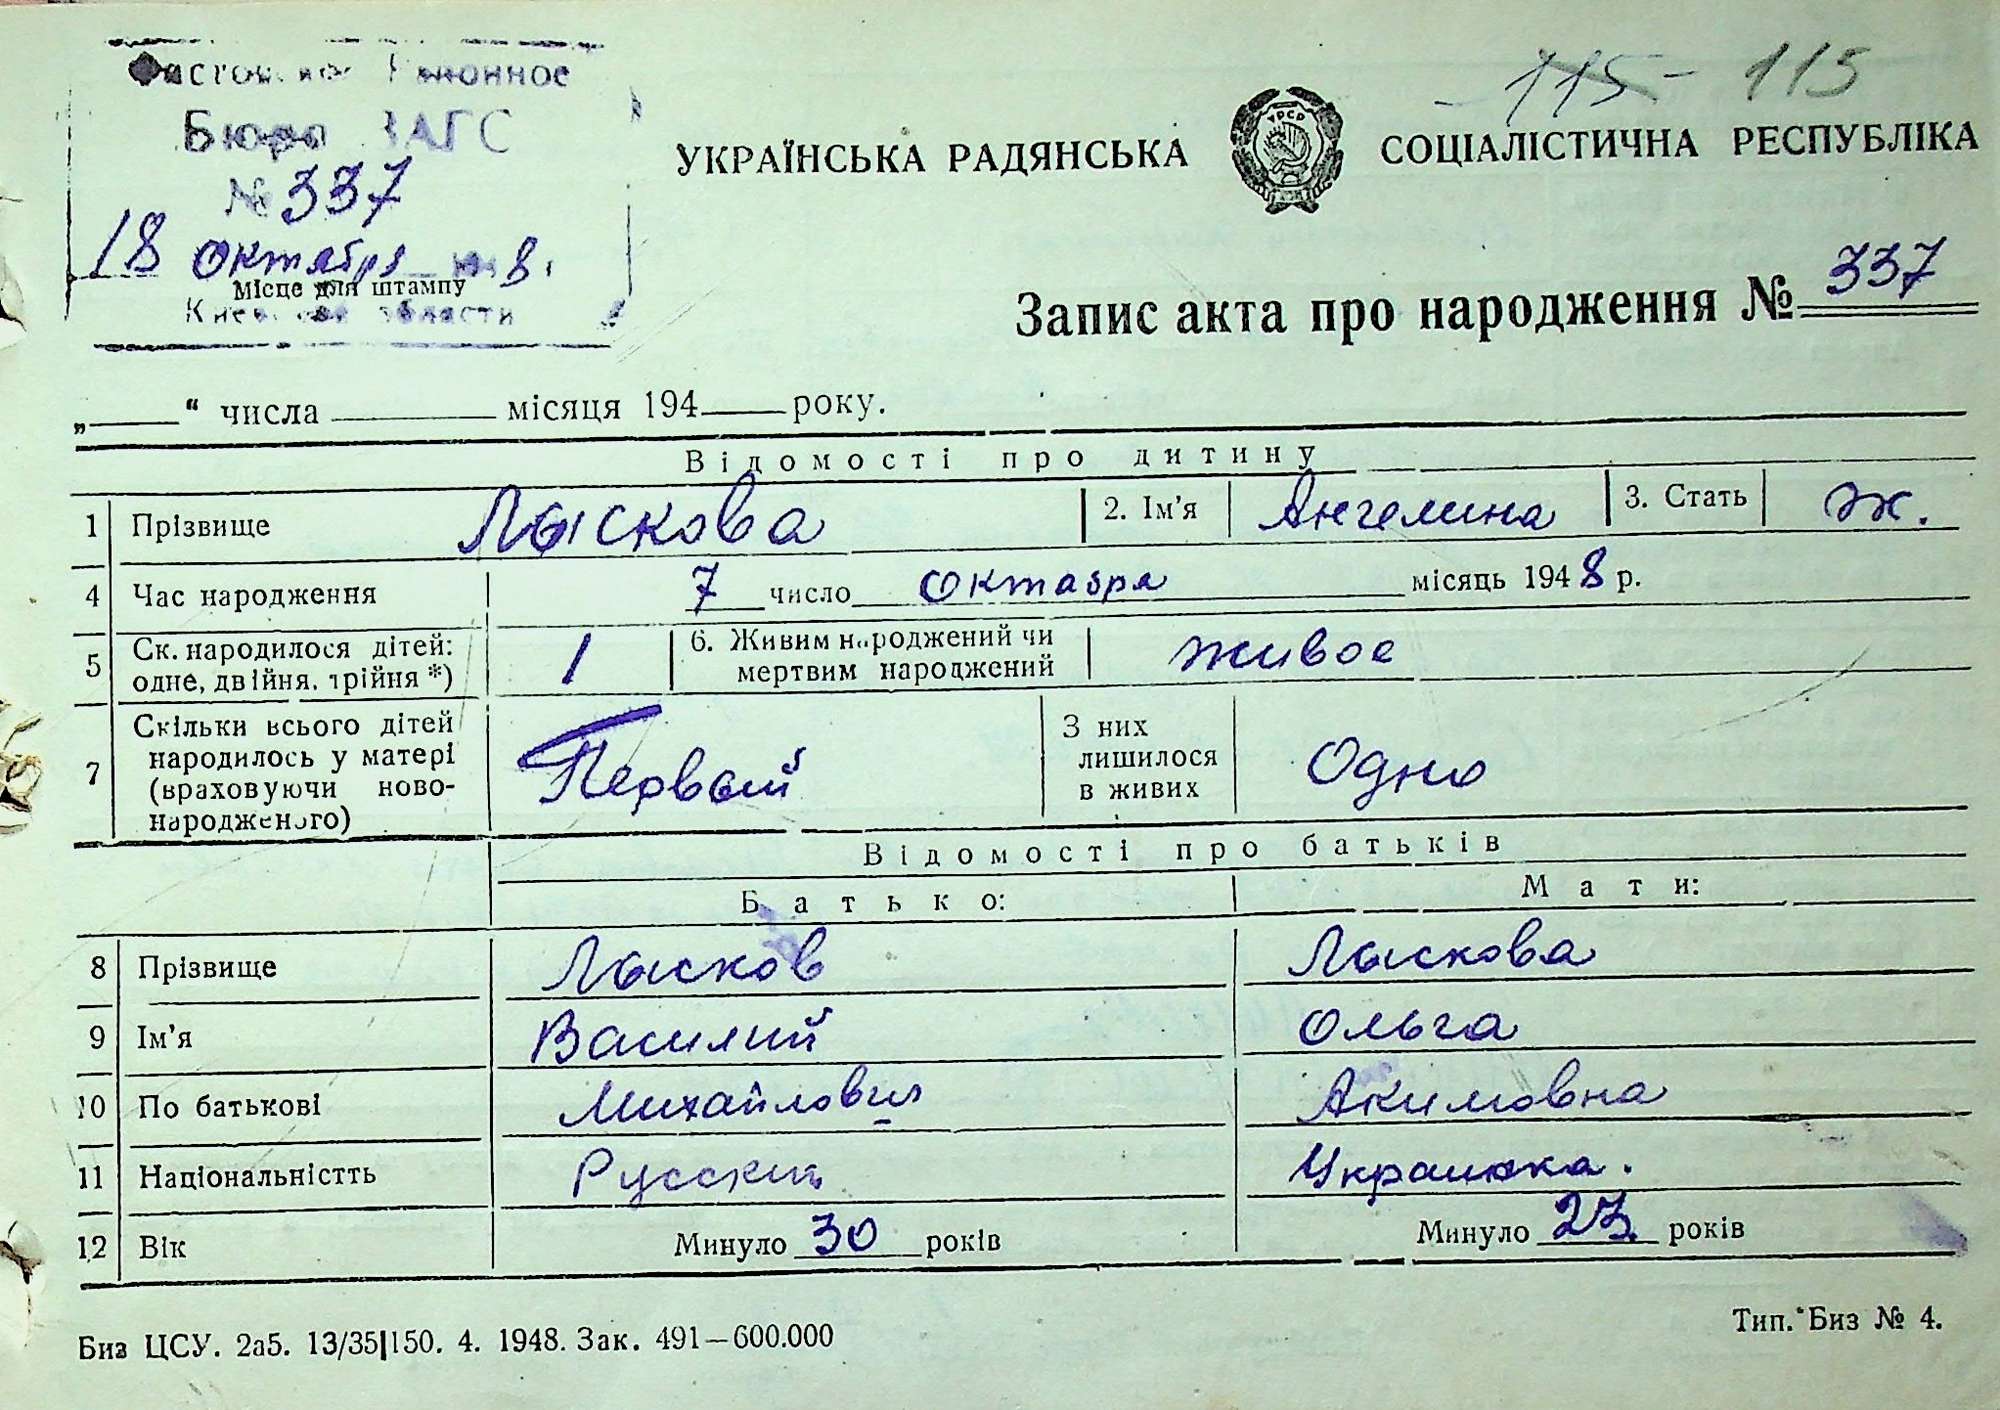 115 - 115
Районное
Бюро ЗАГС
№ 337
18 октября 8.
Місце для штампу
области
УКРАЇНСЬКА РАДЯНСЬКА СОЦІАЛІСТИЧНА РЕСПУБЛІКА
УРСР
Запис акта про народження № 337
„ “ числа місяця 194 року.
Відомості про дитину
1 Прізвище Лыскова 2. Ім’я Ангелина 3. Стать ж.
4 Час народження 7 число октября місяць 1948 р.
5 Ск. народилося дітей: одне, двійня, трійня *) 1 6. Живим народжений чи мертвим народжений живое
7 Скільки всього дітей народилось у матері (враховуючи ново-народженого) Первый З них лишилося в живих Одно
Відомості про батьків
Батько: Мати:
8 Прізвище Лысков Лыскова
9 Ім’я Василий Ольга
10 По батькові Михайлович Акимовна
11 Національністть Русский Украинка.
12 Вік Минуло 30 років Минуло 23 років
Биз ЦСУ. 2а5. 13/35|150. 4. 1948. Зак. 491—600.000
Тип. Биз № 4.